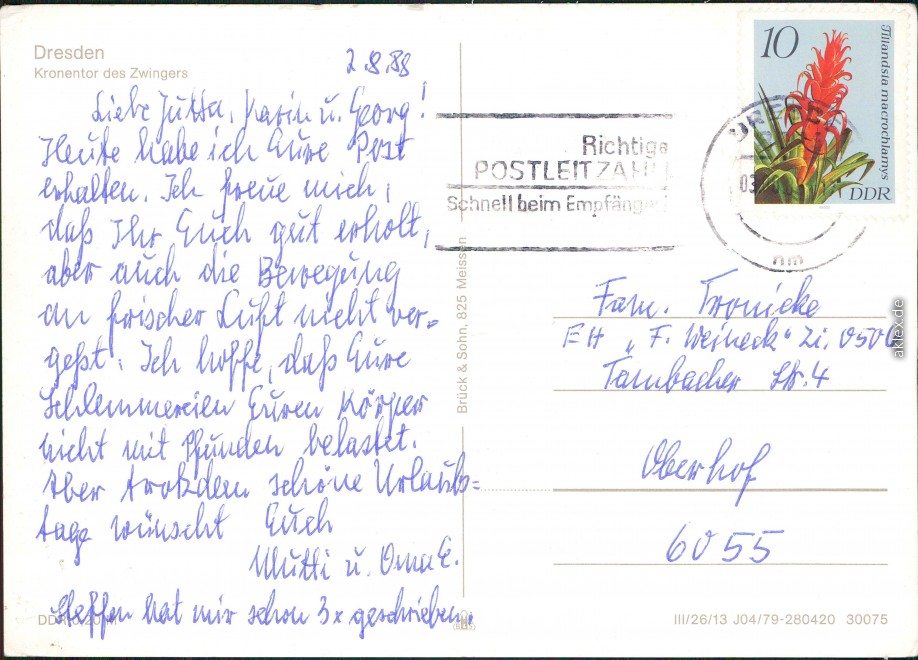 Dresden
Kronentor des Zwingers
2.8.88
Liebe Jutta, Karin u. Georg!
Heute habe ich Eure Post
erhalten. Ich freue mich,
daß Ihr Euch gut erholt,
aber auch die Bewegung
an frischer Luft nicht ver-
geßt. Ich hoffe, daß Eure
Schlemmereien Euren Körper
nicht mit Pfunden belastet.
Aber trotzdem schöne Urlaubs=
tage wünscht Euch
Mutti u. Oma E.
Steffen hat mir schon 3x geschrieben.
DDR
III/26/13 J04/79-280420 30075
Brück & Sohn, 825 Meissen
Richtige
POSTLEITZAHL
Schnell beim Empfänger
10
Tillandsia macrochlamys
DDR
03
nm
Fam. Tronicke
EH „F. Weineck“ Zi. 0506
Tambacher Str. 4
Oberhof
6055
akpool.de